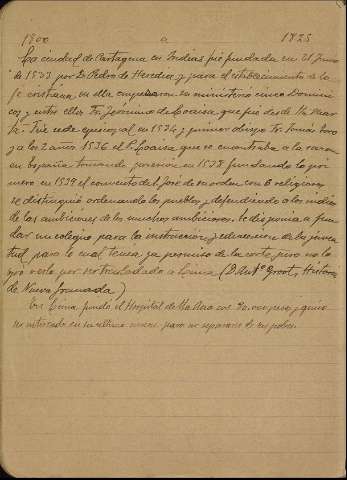 1900 a 1825
La ciudad de Cartagena en Indias fué fundada en 21 Junio
de 1533 por D. Pedro de Heredia, y para el establecimiento de la
fe cristiana en ella empezaron su ministerio cinco Dominicos
y entre ellos Fr. Jerónimo de Loaisa, que fué desde Sta Mar
ta. Fué sede episcopal en 1534 y primer obispo Fr. Tomás Toro
y a los 2 años 1536 el P. Loaisa que se encontraba a la sazon
en España tomando posesion en 1538 fundando lo pri
mero en 1539 el convento del José de su orden con 6 religiosos
se distinguió ordenando los pueblos y defendiendo a los indios
de las ambiciones de los muchos ambiciosos. Se disponia a fun
dar un colegio para la instruccion y educacion de la juven
tud para lo cual tenia ya permiso de la corte, pero no lo
por ser trasladado a Lima (D. Antº Groot, Historia
de Nueva Granada)
En Lima fundó el Hospital de Sta Ana con y quiso
ser enterrado en su para no separarse de sus pobres.